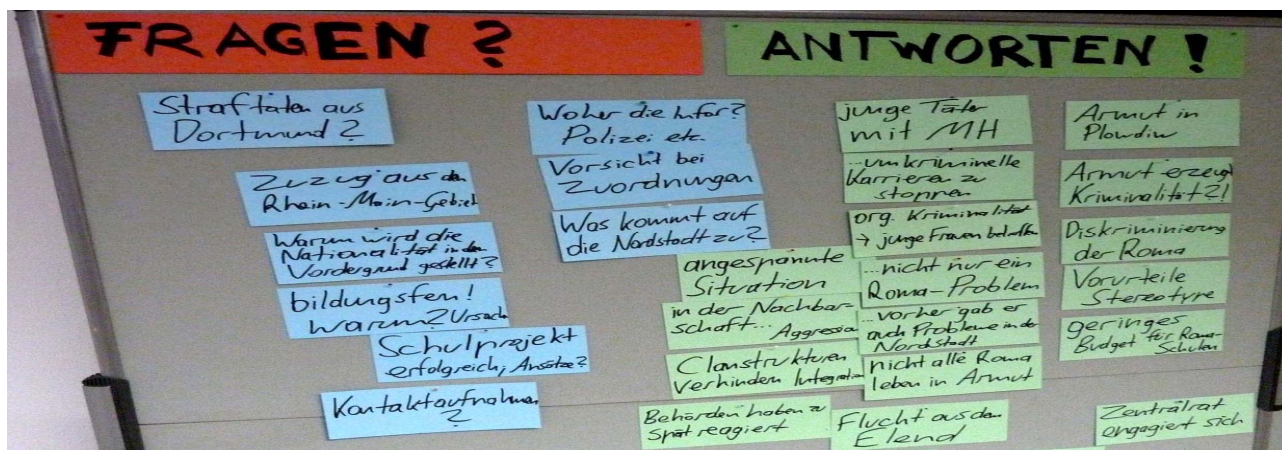 FRAGEN ?
Straftaten aus
Dortmund ?
Zuzug aus dem
Rhein-Main-Gebiet
Warum wird die
Nationalität in den
Vordergrund gestellt?
bildungsfern!
Warum? Ursach
Schulprojekt
erfolgreich, Ansätze?
Kontaktaufnahmen
?
Woher die Infor?
Polizei etc.
Vorsicht bei
Zuordnungen
Was kommt auf
die Nordstadt zu?
ANTWORTEN !
angespannte
Situation
in der Nachbar-
schaft... Aggression
Clanstrukturen
verhindern Integration
Behörden haben zu
spät reagiert
junge Täter
mit MH
...um kriminelle
Karrieren zu
stoppen
org. Kriminalität
→ junge Frauen betroffen
...nicht nur ein
Roma-Problem
...vorher gab er
auch Probleme in der
Nordstadt
nicht alle Roma
leben in Armut
Flucht aus dem
Elend
Armut in
Plowdiw
Armut erzeugt
Kriminalität?!
Diskriminierung
der Roma
Vorurteile
Stereotype
geringes
Budget für Roma-
Schulen
Zentralrat
engagiert sich